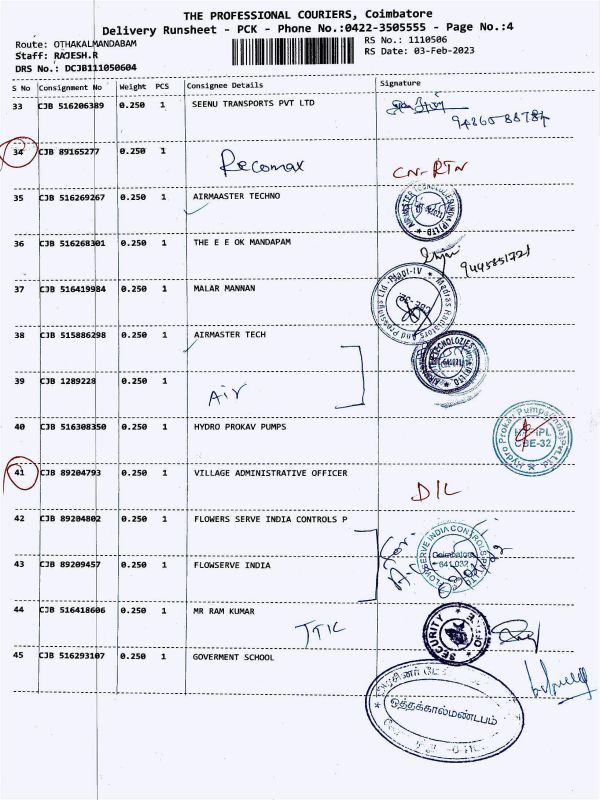 THE PROFESSIONAL COURIERS, Coimbatore
Delivery Runsheet - PCK - Phone No.:0422-3505555 - Page No.:4
Route: OTHAKALMANDABAM RS No.: 1110506
Staff: RAJESH.R RS Date: 03-Feb-2023
DRS No.: DCJB111050604
S No Consignment No Weight PCS Consignee Details Signature
33 CJB 516206389 0.250 1 SEENU TRANSPORTS PVT LTD
34 CJB 89165277 0.250 1 Recomax CN-RTN
35 CJB 516269267 0.250 1 AIRMAASTER TECHNO
36 CJB 516268301 0.250 1 THE E E OK MANDAPAM
9445851721
37 CJB 516419984 0.250 1 MALAR MANNAN
38 CJB 515886298 0.250 1 AIRMASTER TECH
39 CJB 1289228 0.250 1 Air
40 CJB 516308350 0.250 1 HYDRO PROKAV PUMPS
Hydro Prokav Pumps India Pvt. Ltd
CBE-32
41 CJB 89204793 0.250 1 VILLAGE ADMINISTRATIVE OFFICER D/L
42 CJB 89204802 0.250 1 FLOWERS SERVE INDIA CONTROLS P
43 CJB 89209457 0.250 1 FLOWSERVE INDIA
FLOWSERVE INDIA CONTROLS PVT LTD
Coimbatore
641 032
44 CJB 516418606 0.250 1 MR RAM KUMAR
SECURITY
45 CJB 516293107 0.250 1 GOVERMENT SCHOOL
ஒத்தக்கால்மண்டபம்